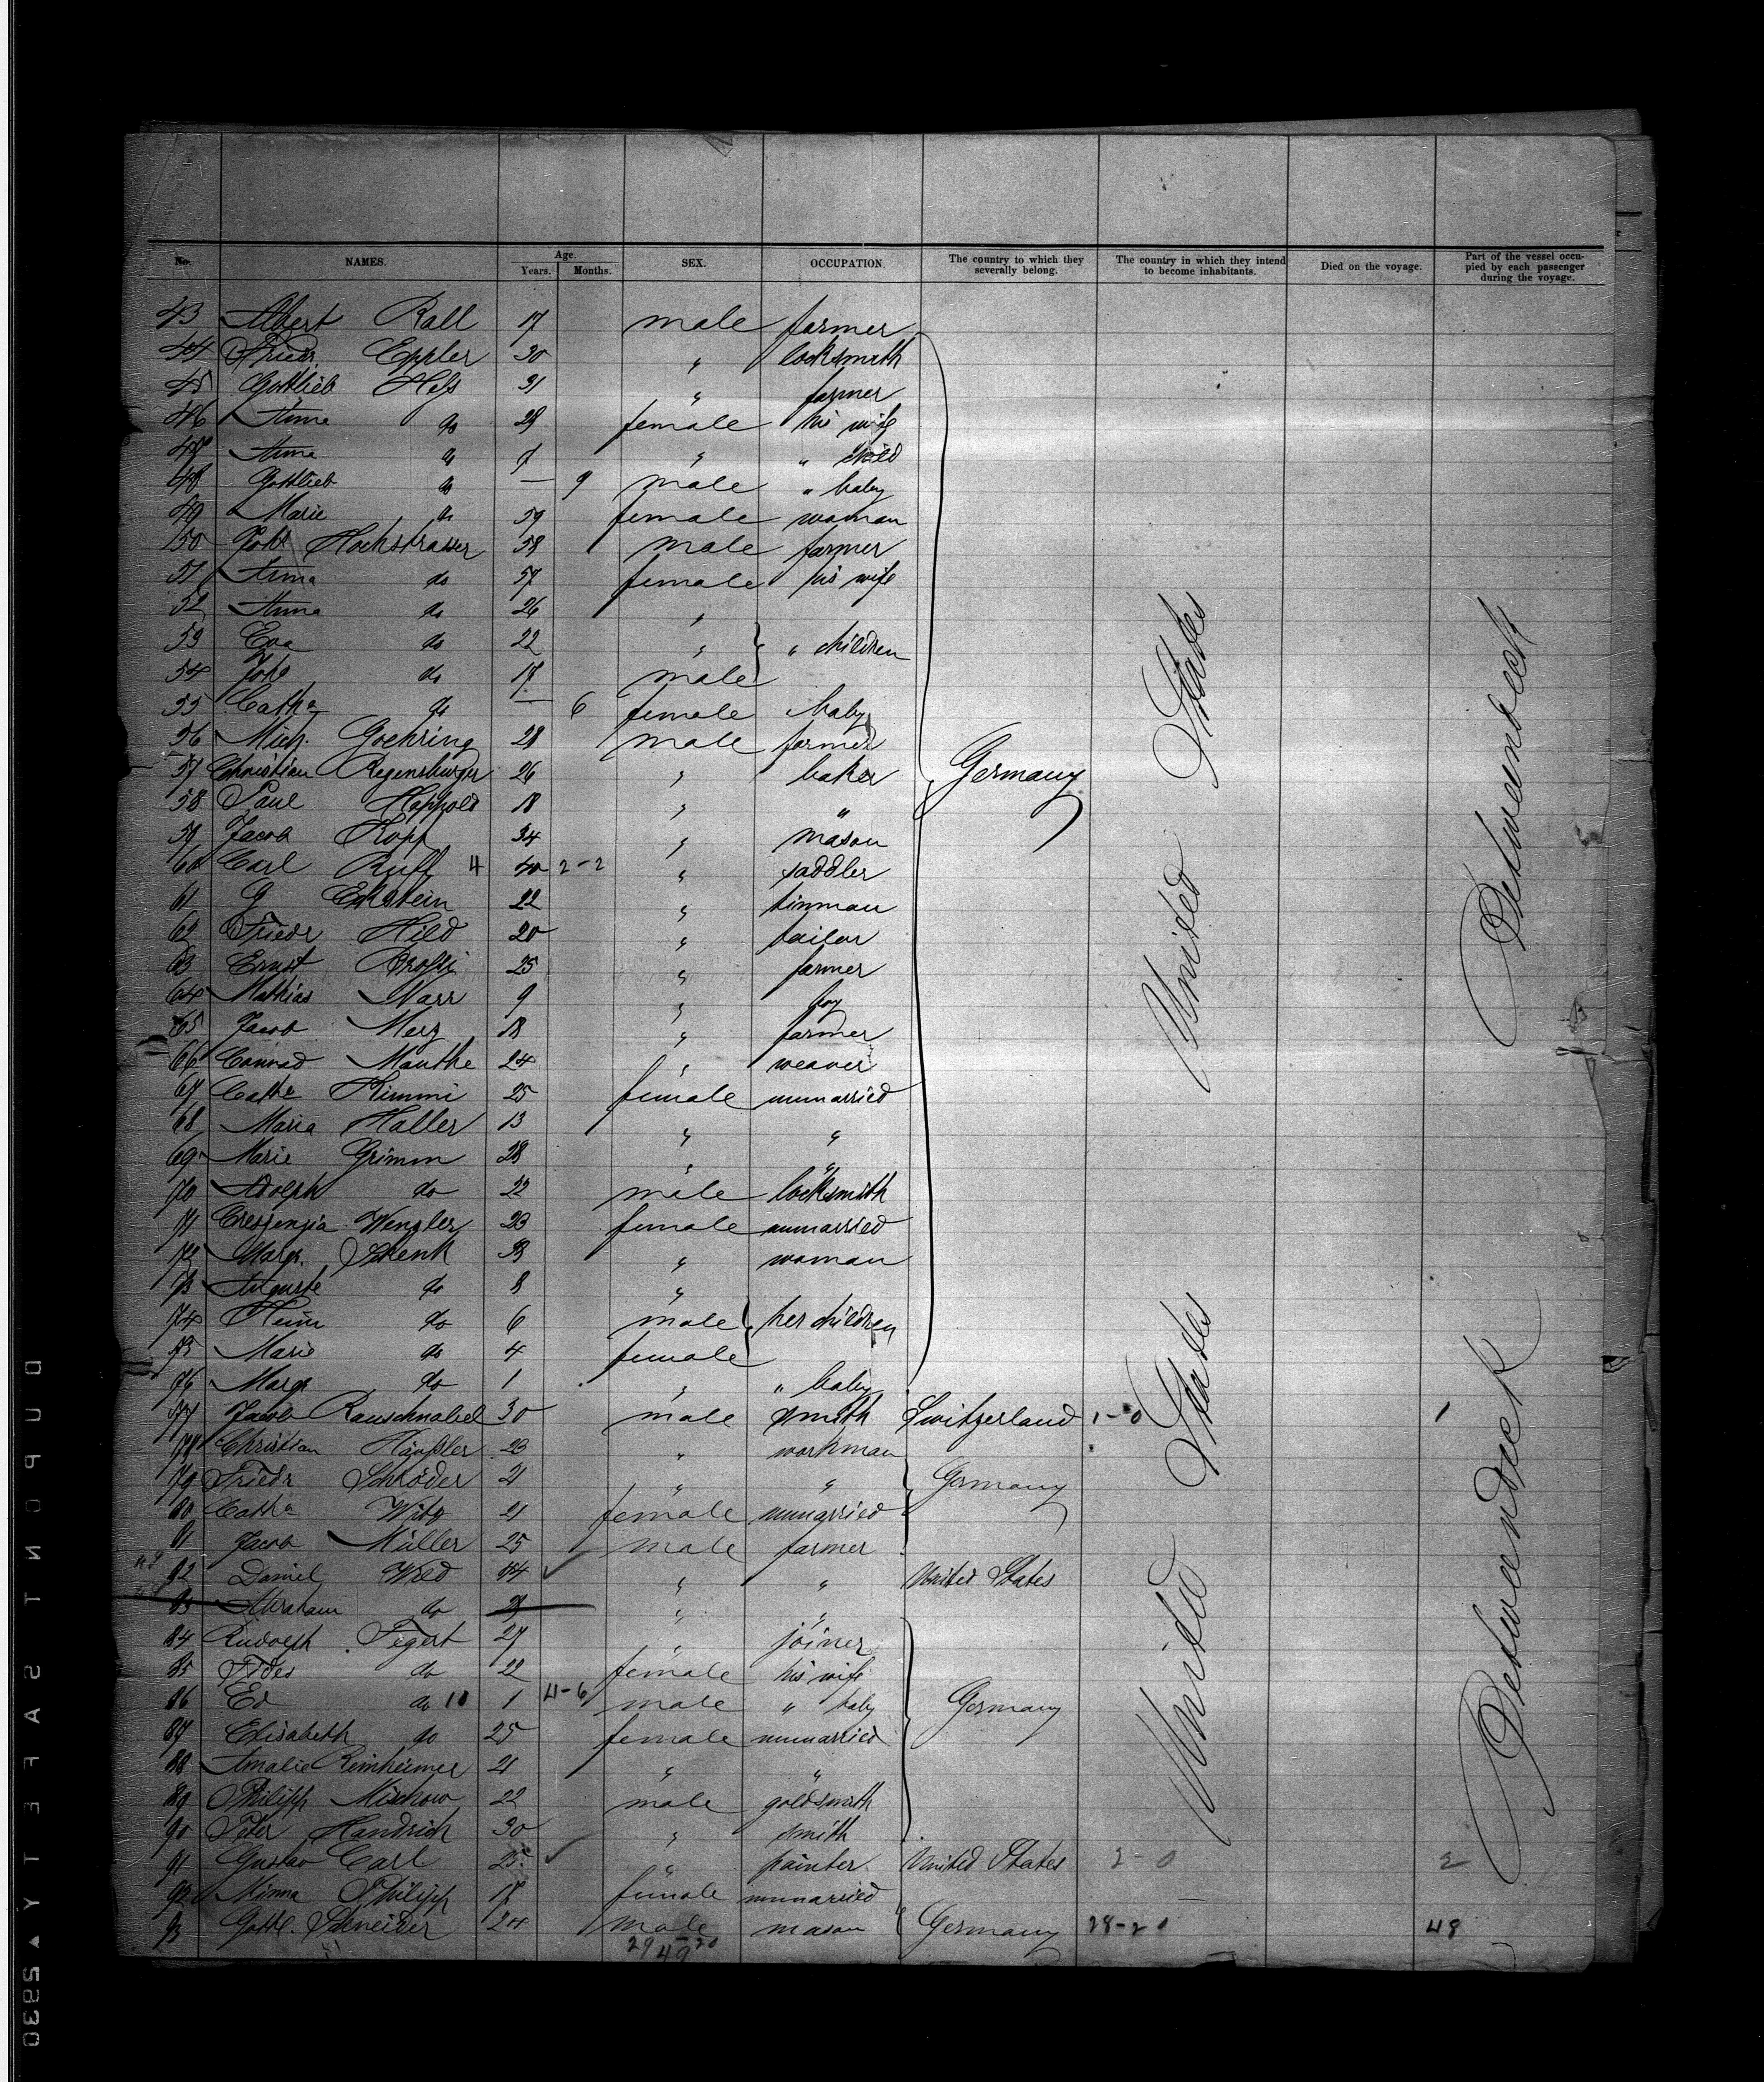 No. NAMES. Age. Years. Months. SEX. OCCUPATION. The country to which they severally belong. The country in which they intend to become inhabitants. Died on the voyage. Part of the vessel occupied by each passenger during the voyage.
43 Albert Rall 17 male farmer
44 Friedr Eppler 30 " locksmith
45 Gottlieb Hess 31 " farmer
46 Anna do 29 female his wife
47 Anna do 7 " " child
48 Gottlieb do — 9 male " baby
49 Marie do 59 female woman
50 Johs Hochstrasser 58 male farmer
51 Anna do 57 female his wife
52 Anna do 26 "
53 Eva do 22 " " children
54 Johs do 17 male
55 Catha do — 6 female baby
56 Mich. Goehring 28 male farmer
57 Christian Regensburger 26 " baker Germany
58 Paul Happold 18 " "
59 Jacob Kopp 34 " mason
60 Carl Ruff 4 40 2-2 " saddler
61 G Eckstein 22 " tinman
62 Friedr Hild 20 " tailor
63 Ernst 25 " farmer
64 Mathias Narr 9 " boy
65 Jacob Merz 18 " farmer
66 Conrad Mauthe 24 " weaver
67 Cathe Kimmi 25 female unmarried
68 Maria Haller 13 " "
69 Marie Grimm 28 " "
70 Adolph do 22 male locksmith
71 Creszenzia Wengler 23 female unmarried
72 Margr. Schenk " woman
73 Auguste do 8 "
74 Heinr do 6 male her children
75 Marie do 4 female
76 Margr do 1 " " baby
77 Jacob Rauschnabel 30 male smith Switzerland 1-0 1
78 Christian Häussler 23 " workman
79 Friedr Schröder 21 " " Germany
80 Catha Witz 21 female unmarried
81 Jacob Müller 25 male farmer
82 Daniel Wild 44 " " United States
83 Abraham do " "
84 Rudolph Tegert 27 " joiner
85 Fides do 22 female his wife
86 Ed do 10 1 4-6 male " baby Germany
87 Elisabeth do 25 female unmarried
88 Amalie Reinheimer 21 " "
89 Philipp Mischow 22 male goldsmith
90 Peter Handrich 30 " smith
91 Gustav Carl 25 " painter United States 2-0 2
92 Minna Philipp 17 female unmarried
93 Gottl. Schneider 24 male mason Germany 28-20 48
29 - 20
49
United States
United States
Betweendeck
Betweendeck
DUPONT SAFETY 5830